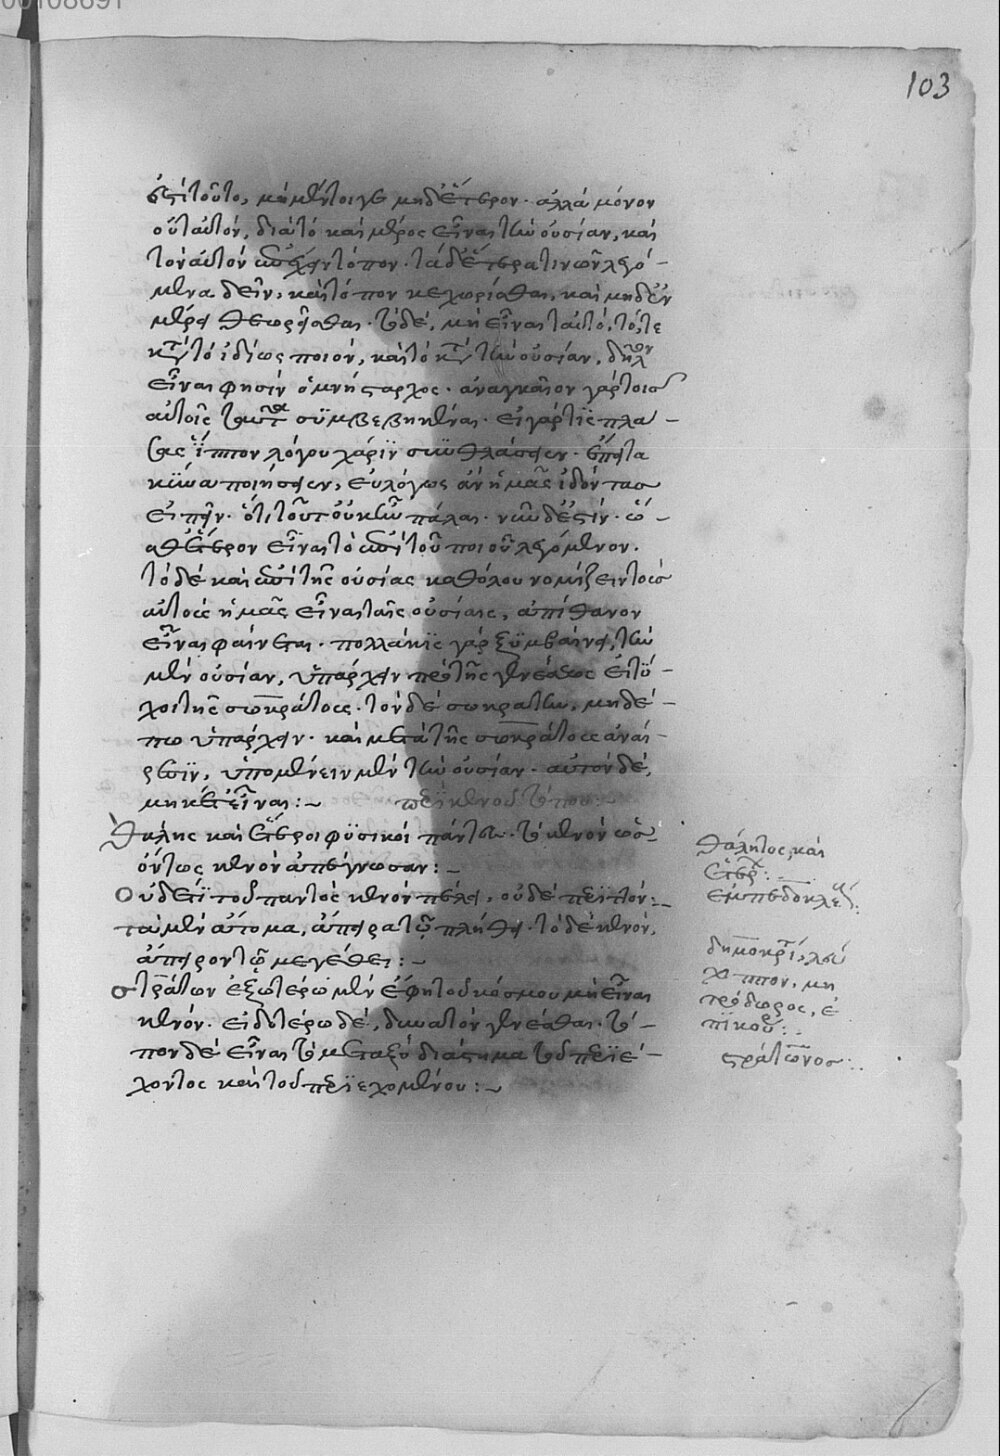 00108691
103
ἐστὶ τοῦτο, καὶ μέντοι γε μηδ' ἕτερον· ἀλλὰ μόνον
οὐ ταυτόν, διὰ τὸ καὶ μέρος εἶναι τὴν οὐσίαν, καὶ
τὸν αὐτὸν ἐπέχειν τόπον· τὰ δ' ἕτερα τινῶν λεγό-
μενα δεῖν, καὶ τόπον κεχωρίσθαι, καὶ μηδ' ἐν
μέρει θεωρεῖσθαι· τὸ δὲ, μὴ εἶναι ταυτό, τό, τε
κατὰ τὸ ἰδίως ποιόν, καὶ τὸ κατὰ τὴν οὐσίαν, δῆλον
εἶναι φησὶν ὁ μνήσαρχος· ἀναγκαῖον γὰρ τοῖς
αὐτοῖς ταῦτα συμβεβηκέναι· εἰ γάρ τις πλά-
σας ἵππον λόγου χάριν συνθλάσειεν· ἔπειτα
κύνα ποιήσειεν, εὐλόγως ἂν ἡμᾶς ἰδόντας
εἰπεῖν· ὅτι τοῦτ' οὐκ ἦν πάλαι· νῦν δ' ἔστιν· ὥ-
σθ' ἕτερον εἶναι τὸ ἐπὶ τοῦ ποιοῦ λεγόμενον.
τὸ δὲ καὶ ἐπὶ τῆς οὐσίας καθόλου νομίζειν τοὺς
αὐτοὺς ἡμᾶς εἶναι ταῖς οὐσίαις, ἀπίθανον
εἶναι φαίνεται· πολλάκις γὰρ ξυμβαίνει, τὴν
μὲν οὐσίαν, ὑπάρχειν πρὸ τῆς γενέσεως εἰ τύ-
χοι τῆς σωκράτους· τὸν δὲ σωκράτην, μηδέ-
πω ὑπάρχειν· καὶ μετὰ τὴς σωκράτους ἀναί-
ρεσιν, ὑπομένειν μὲν τὴν οὐσίαν· αὐτὸν δὲ,
μηκέτ' εἶναι:~ περὶ κενοῦ τόπου:
Θαλῆς καὶ ἕτεροι φυσικοὶ πάντες· τὸ κενὸν ὡς
ὄντως κενὸν ἀπέγνωσαν:-
Οὐδέ τι τοῦ παντὸς κενὸν πέλει, οὐδὲ περιττόν:-
τὰ μὲν ἄτομα, ἄπειρα τῷ πλήθει· τὸ δὲ κενόν,
ἄπειρον τῷ μεγέθει:~
στράτων ἐξωτέρω μὲν ἔφη τοῦ κόσμου μὴ εἶναι
κενόν· εἰδοτέρω δὲ, δυνατὸν γενέσθαι· τό-
πον δὲ εἶναι τὸ μεταξὺ διάστημα τοῦ περιέ-
χοντος καὶ τοῦ περιεχομένου:~
θάλητος, καὶ
ἑτέρων:
ἐμπεδοκλέους:
δημοκρίτου, λεύ
κιππου, μη
τρόδωρος, ἐ
πίκουρος:
στράτωνος: